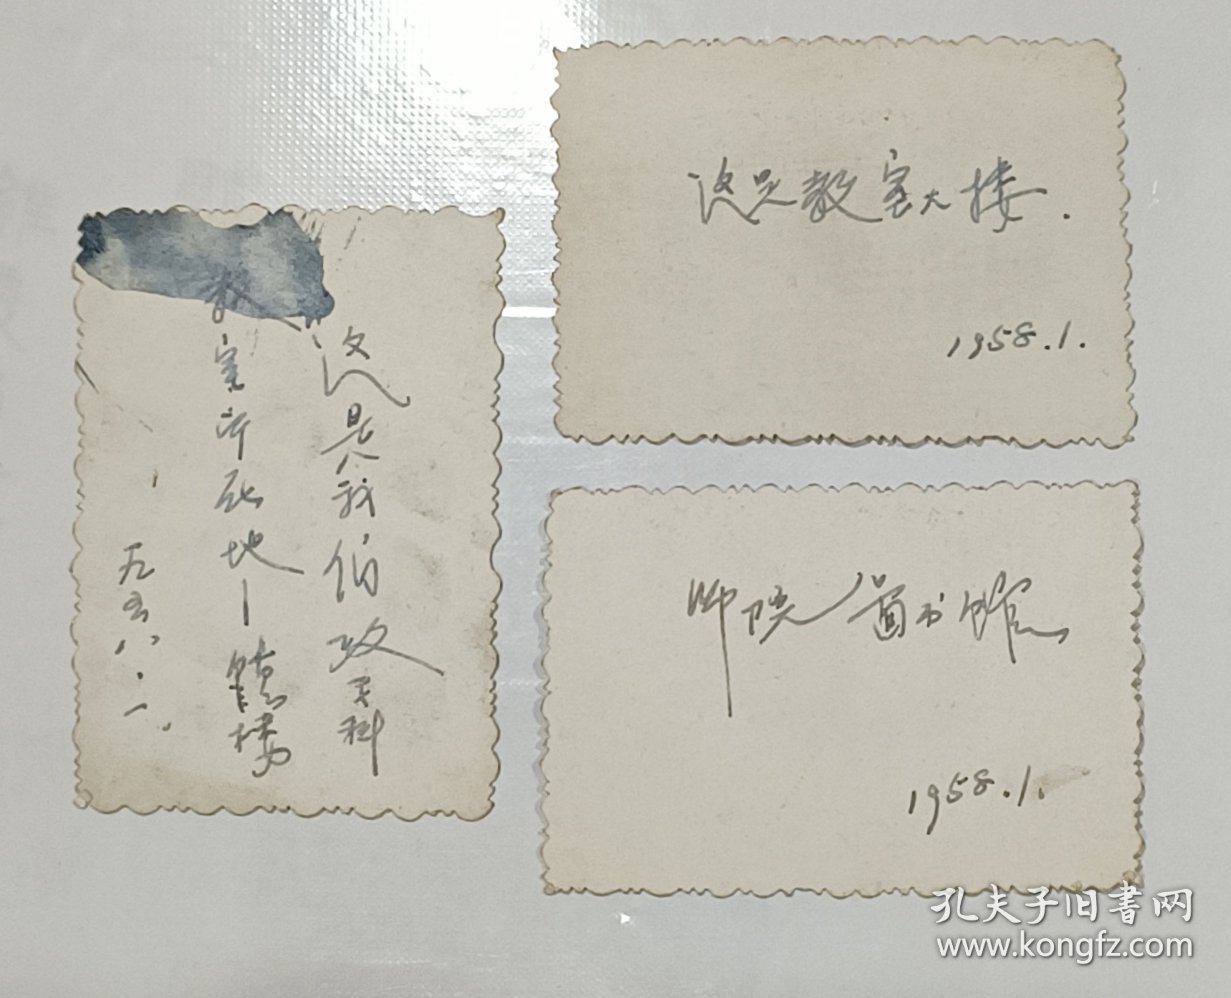 这是我们政史科
教室所在地—馆楼
一九五八.一.
这是教室大楼.
1958.1.
师院图书馆
1958.1.
孔夫子旧書网
www.kongfz.com